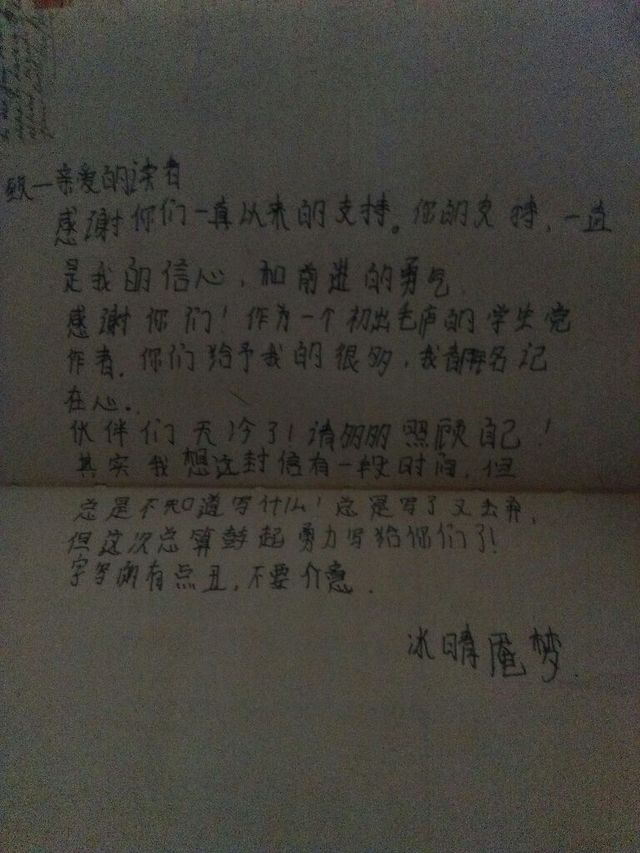 致一亲爱的读者
感谢你们一直以来的支持。你的支持，一直
是我的信心，和前进的勇气
感谢你们！作为一个初出毛庐的学生党
作者．你们给予我的很多，我都铭记
在心．
伙伴们天冷了！请多多照顾自己！
其实我想这封信有一段时间，但
总是不知道写什么！总是写了又丢弃，
但这次总算鼓起勇力写给你们了！
字写的有点丑，不要介意．
冰晴 梦